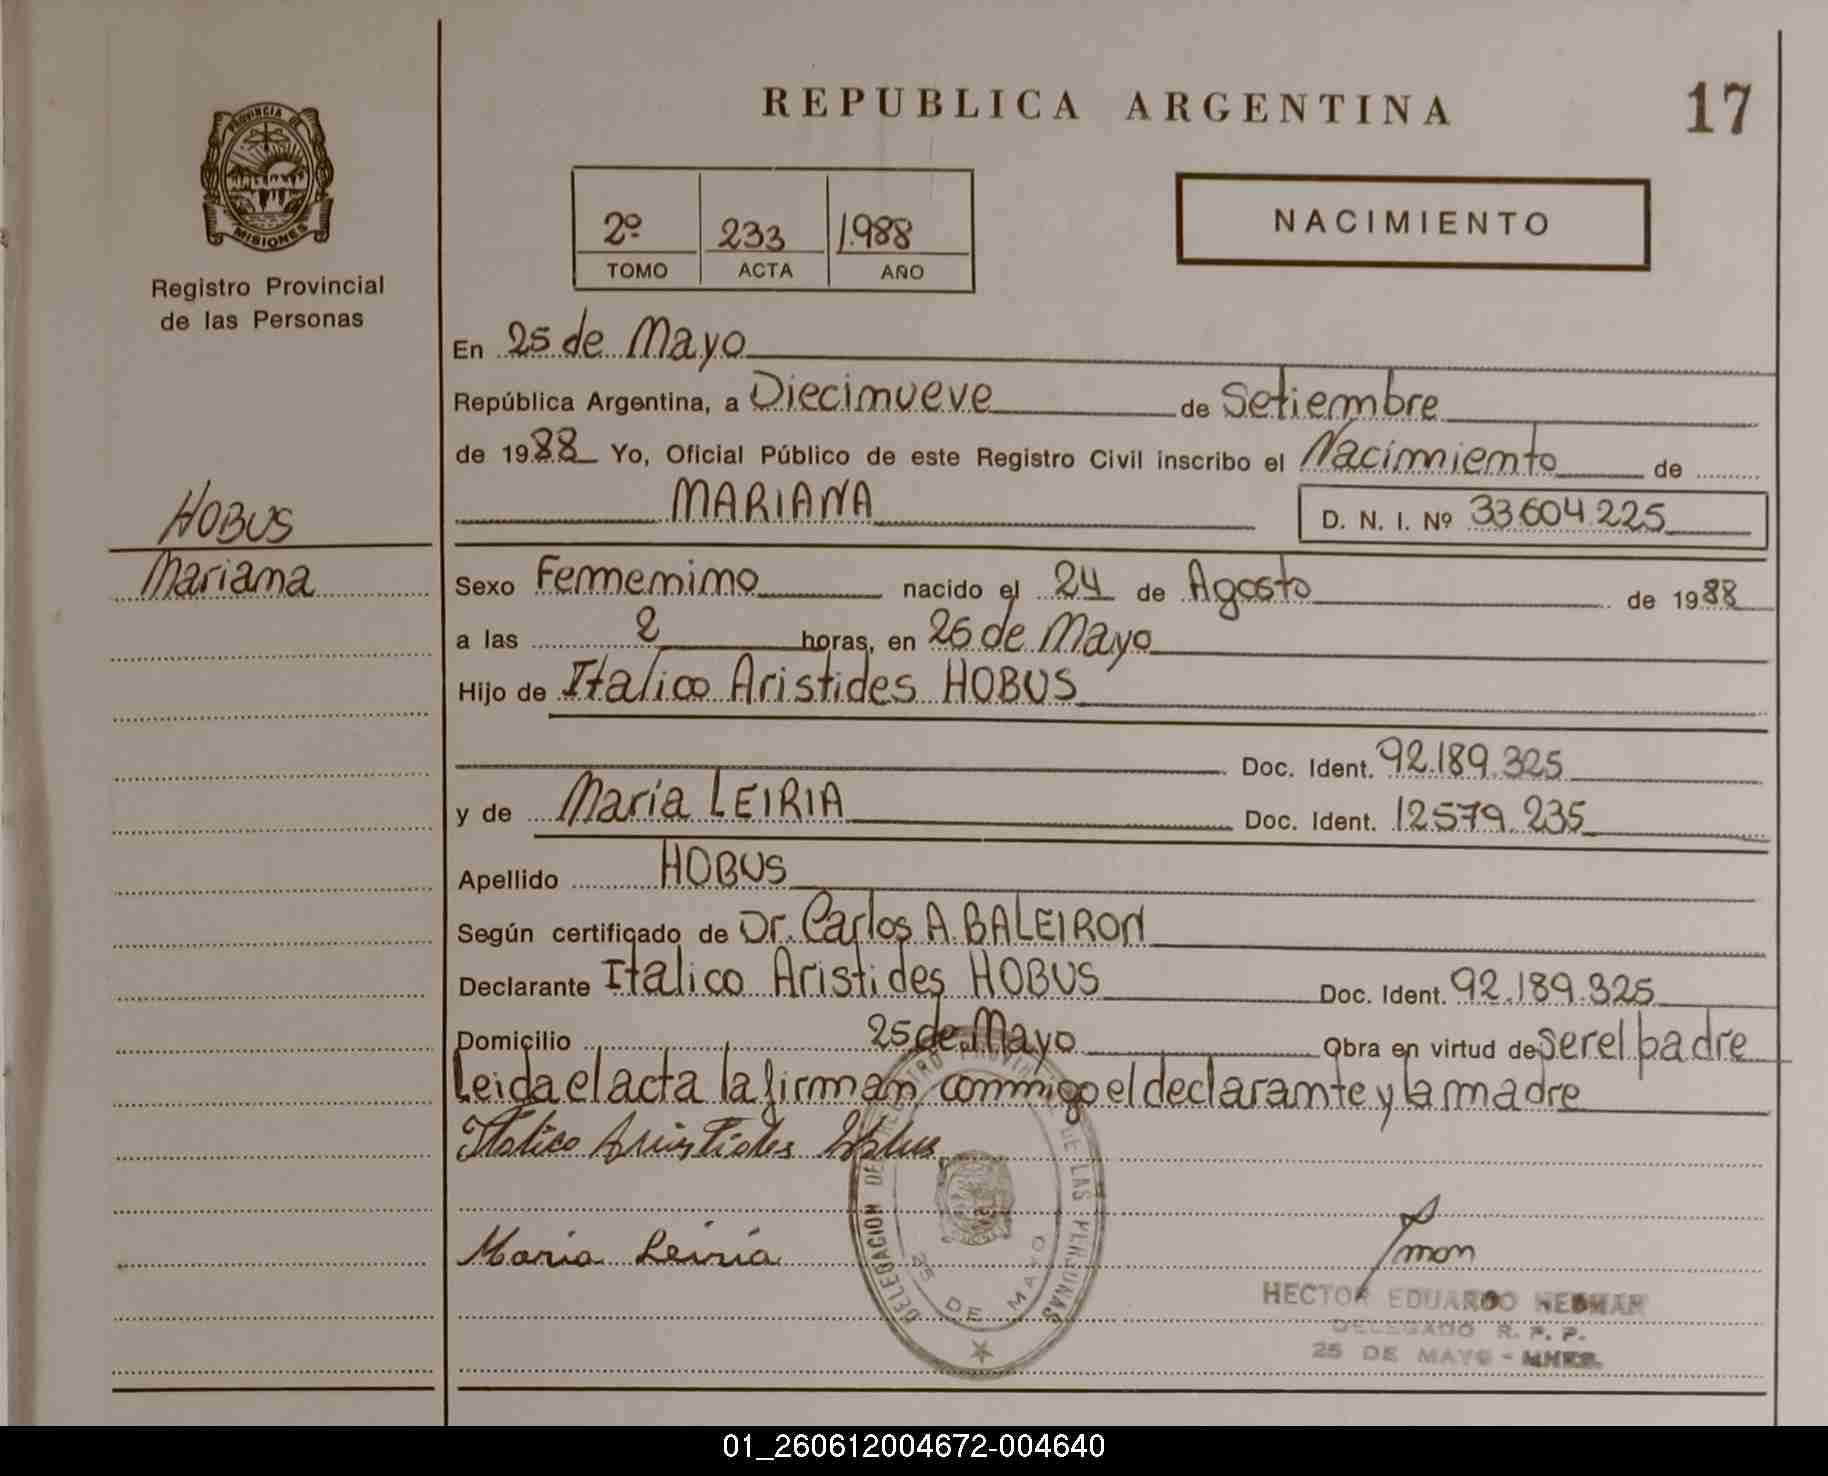 REPUBLICA ARGENTINA
17
PROVINCIA DE
MISIONES
Registro Provincial
de las Personas
2º 233 1.988
TOMO ACTA AÑO
NACIMIENTO
En 25 de Mayo
República Argentina, a Diecinueve de Setiembre
de 1988 Yo, Oficial Público de este Registro Civil inscribo el Nacimiento de
MARIANA D. N. I. Nº 33.604.225
HOBUS
Mariana
Sexo Femmenino nacido el 24 de Agosto de 1988
a las 2 horas, en 25 de Mayo
Hijo de Italico Aristides HOBUS
Doc. Ident. 92.189.325
y de María LEIRIA Doc. Ident. 12.579.235
Apellido HOBUS
Según certificado de Dr. Carlos A. BALEIRON
Declarante Italico Aristides HOBUS Doc. Ident. 92.189.325
Domicilio 25 de Mayo Obra en virtud de ser el padre
Leida el acta la firman conmigo el declarante y la madre
Italico Aristides Hobus
Maria Leiria
DELEGACION DEL REGISTRO PROVINCIAL DE LAS PERSONAS
25 DE MAYO
HECTOR EDUARDO
DELEGADO R. P. P.
25 DE MAYO - MNES.
01_260612004672-004640